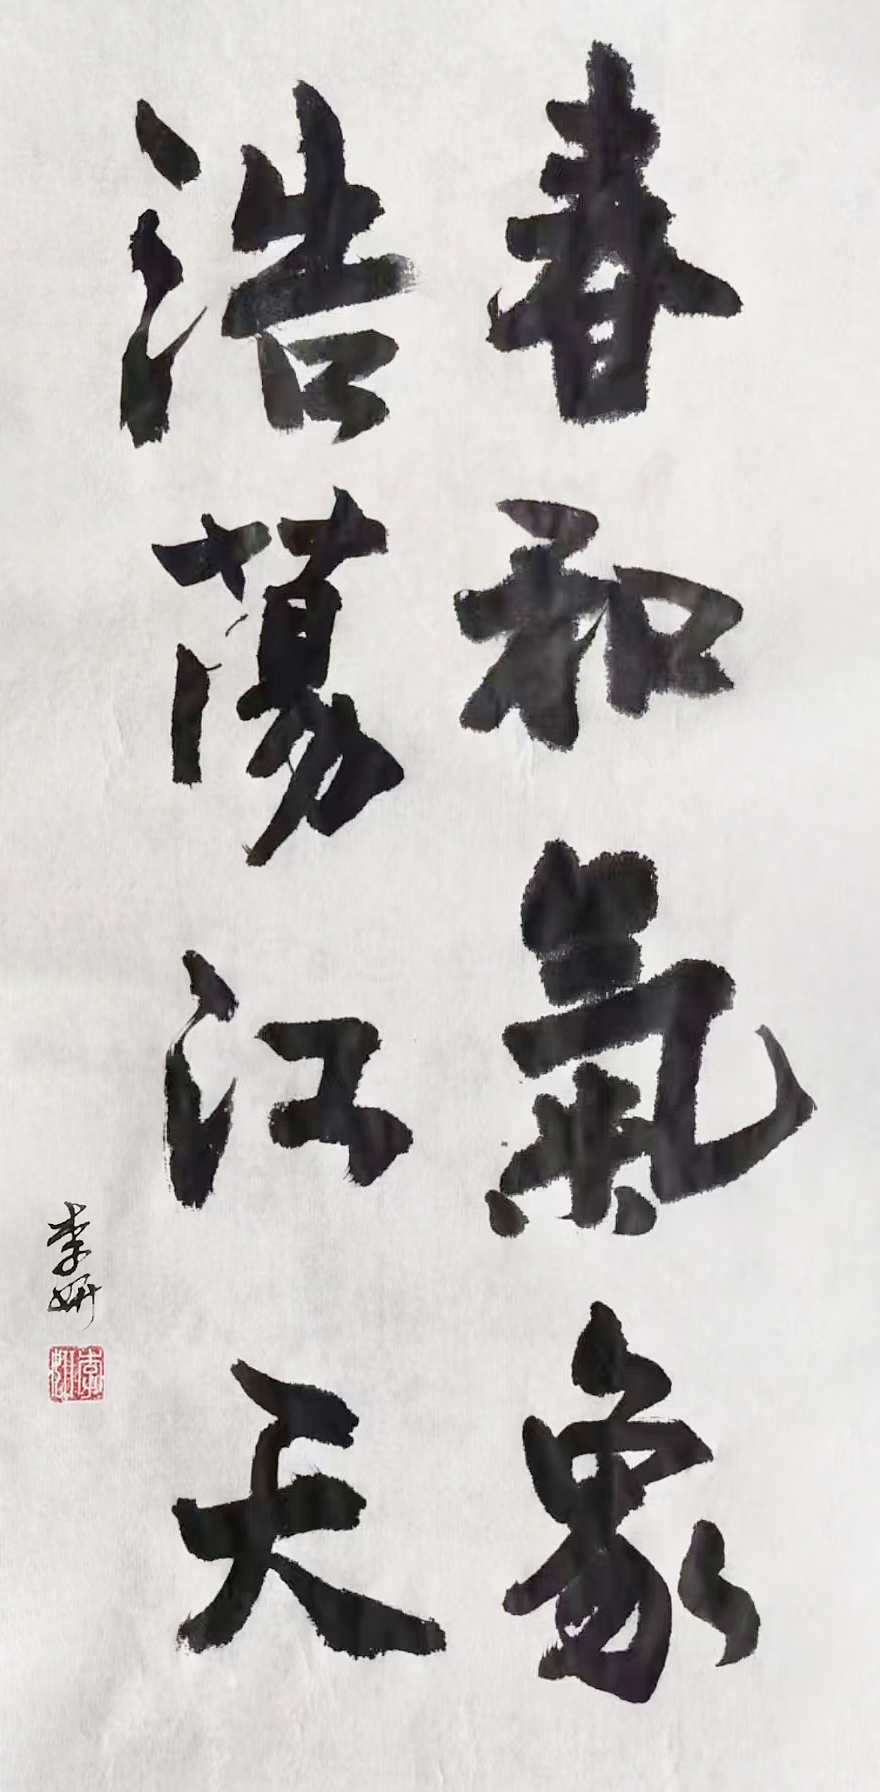 春和氣象
浩蕩江天
李妍